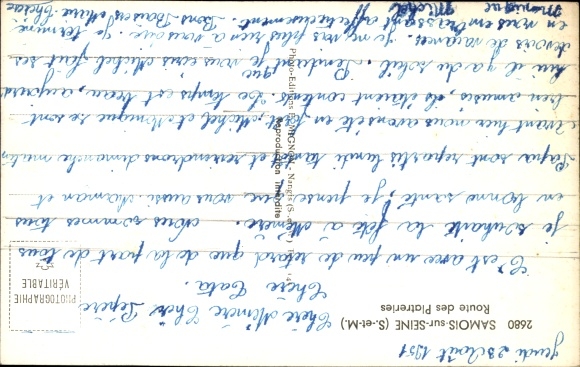 Jeudi 23 Août 1951
2680 SAMOIS-sur-SEINE (S.-et-M.)
Route des Platreries
Chère Mémère Cher Pépère
Chère Tata.
C'est avec un peu de retard que de la part de tous
je souhaite la fête à Mémère. Nous sommes tous
en bonne santé, je pense que vous aussi. Maman et
Papa sont repartis lundi et reviendrons dimanche matin
avant hier nous avons été Michel et Monique se sont
bien amusés, ils étaient contents. Le temps est beau, aujourd
hui il y a du soleil. Pendant que je vous écris Michel fait ses
devoirs de vacances. Je ne vois plus rien à vous dire. Je termine
en vous embrassant affectueusement. Bons Baisers
Michel
Monique
PHOTOGRAPHIE
VÉRITABLE
Photo-Editions MIGNON, Nangis (S.-et-M.)
Reproduction interdite